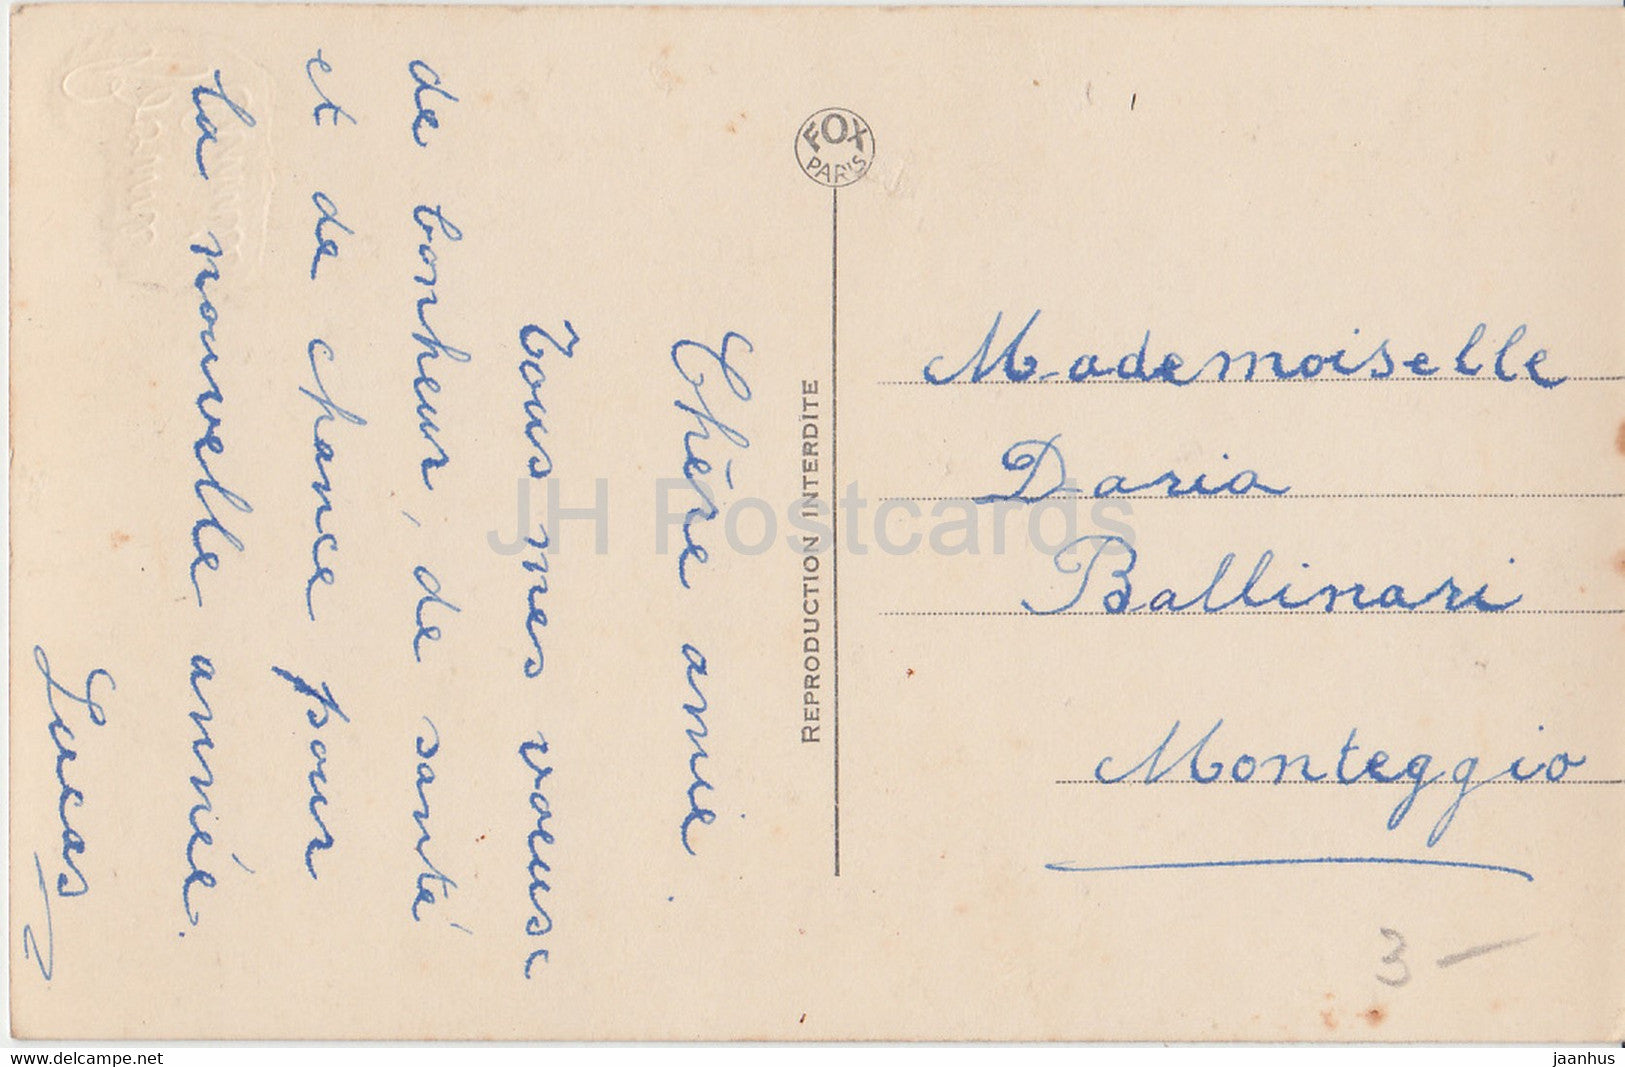 Chère amie.
Tous mes voeux
de bonheur, de santé
et de chance pour
la nouvelle année.
Lucas
FOX
PARIS
REPRODUCTION INTERDITE
Mademoiselle
Daria
Ballinari
Monteggio
3 –
JH Postcards
www.delcampe.net
jaanhus